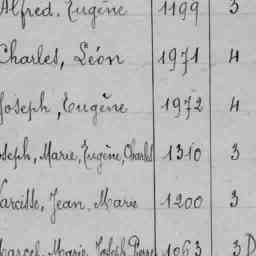 Alfred, Eugène 1199 3
Charles, Léon 1971 4
Joseph, Eugène 1972 4
Joseph, Marie, Eugène, Charles 1310 3
Narcisse, Jean, Marie 1200 3
Marcel, Marie, Joseph, Pierre 1063 3 D